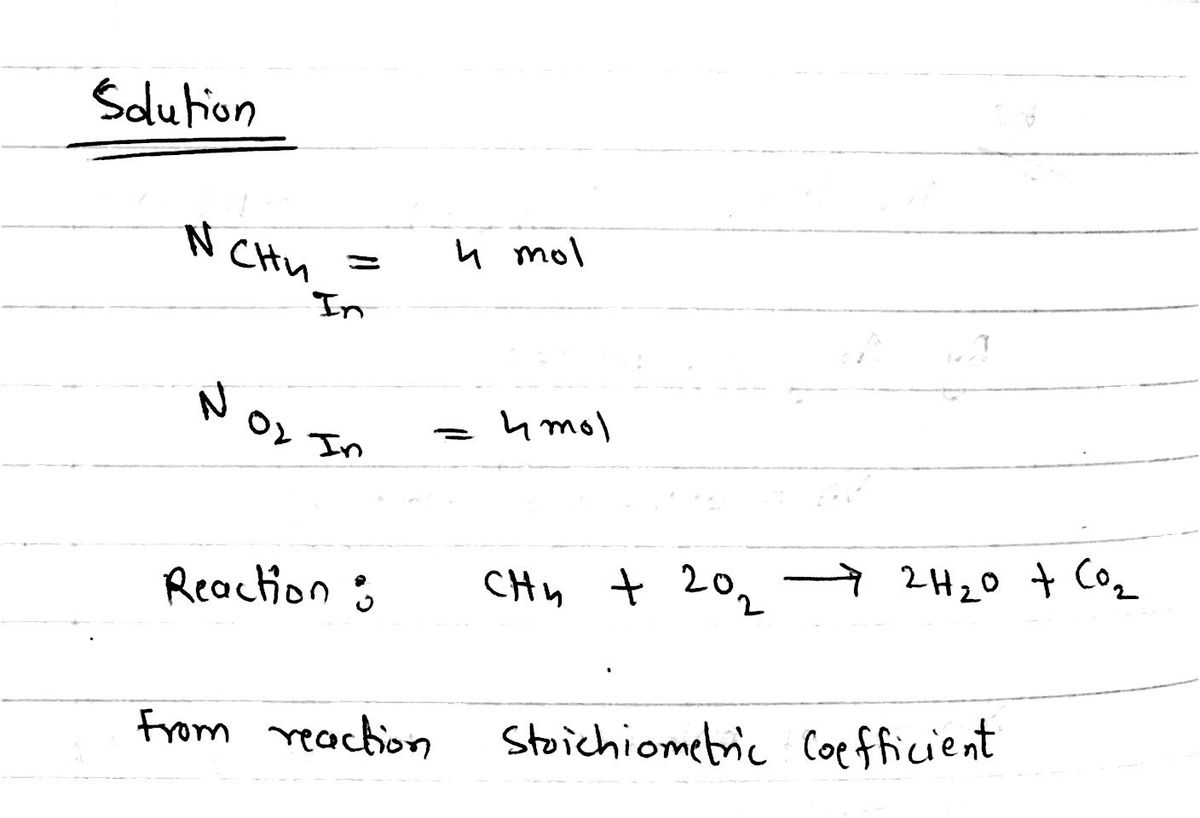 Solution
N CH4 In = 4 mol
N O2 In = 4 mol
Reaction : CH4 + 2O2 → 2H2O + CO2
From reaction Stoichiometric Coefficient